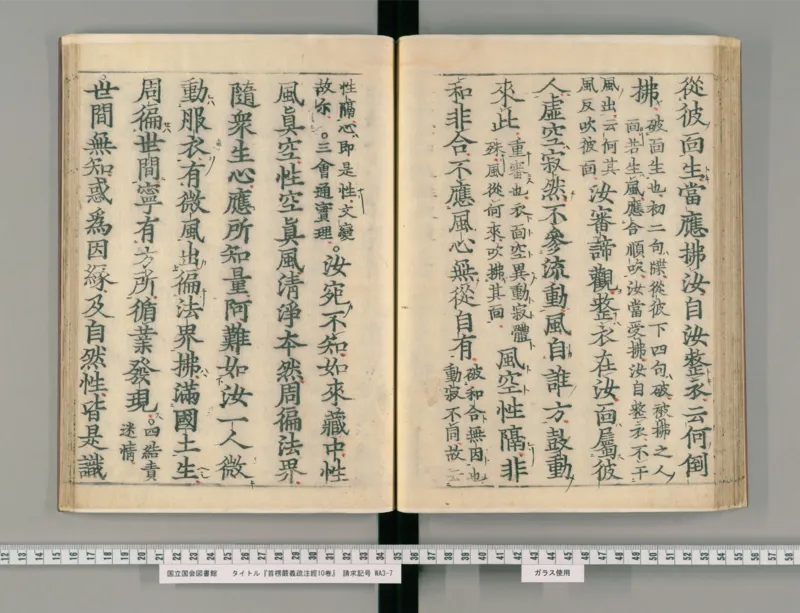 從彼面生當應拂汝自汝整衣云何倒
拂
破面生也初二句牒從彼下四句破被拂之人
面若生風應合順吹汝當受拂汝自整衣不干
風出云何其
風反吹彼面
汝審諦觀整衣在汝面屬彼
人虛空寂然不參流動風自誰方鼓動
來此
重審也衣面空異動寂體
殊風從何來吹拂其面
風空性隔非
和非合不應風心無從自有
破和合無因也
動寂不同故云
性隔心即是性文變
故尓。三會通實理。
汝宛不知如來藏中性
風眞空性空眞風清淨本然周徧法界
隨衆生心應所知量阿難如汝一人微
動服衣有微風出徧法界拂滿國土生
周徧世間寧有方所循業發現
。四結責
迷情
世間無知惑爲因緣及自然性皆是識
国立国会図書館 タイトル『首楞嚴義疏注經10巻』 請求記号 WA3-7
ガラス使用